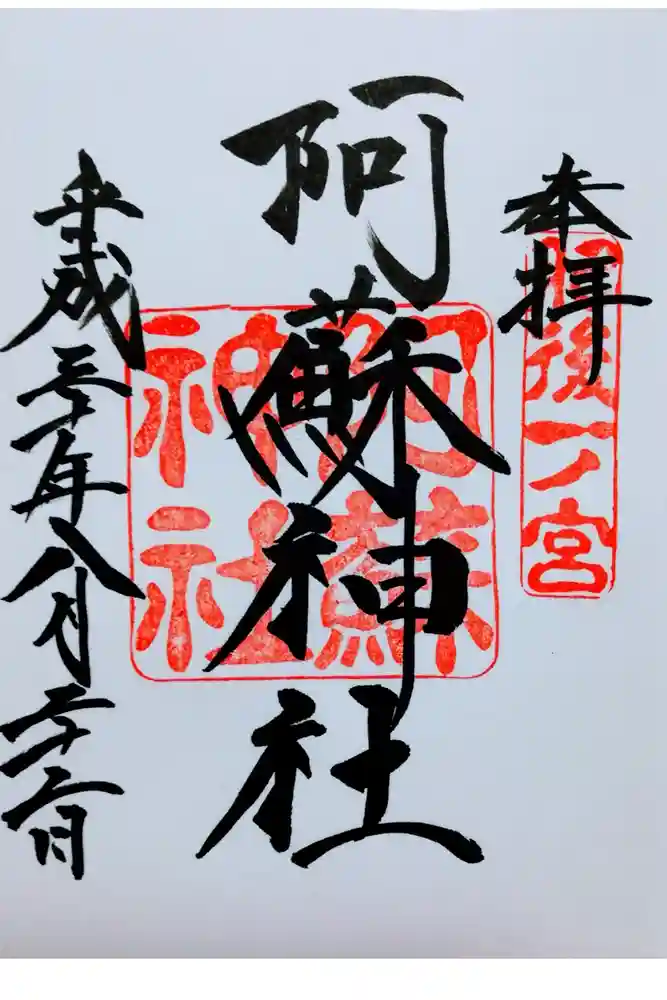 奉拝
肥後一ノ宮
阿蘇神社
阿蘇神社
平成三十年八月二十二日